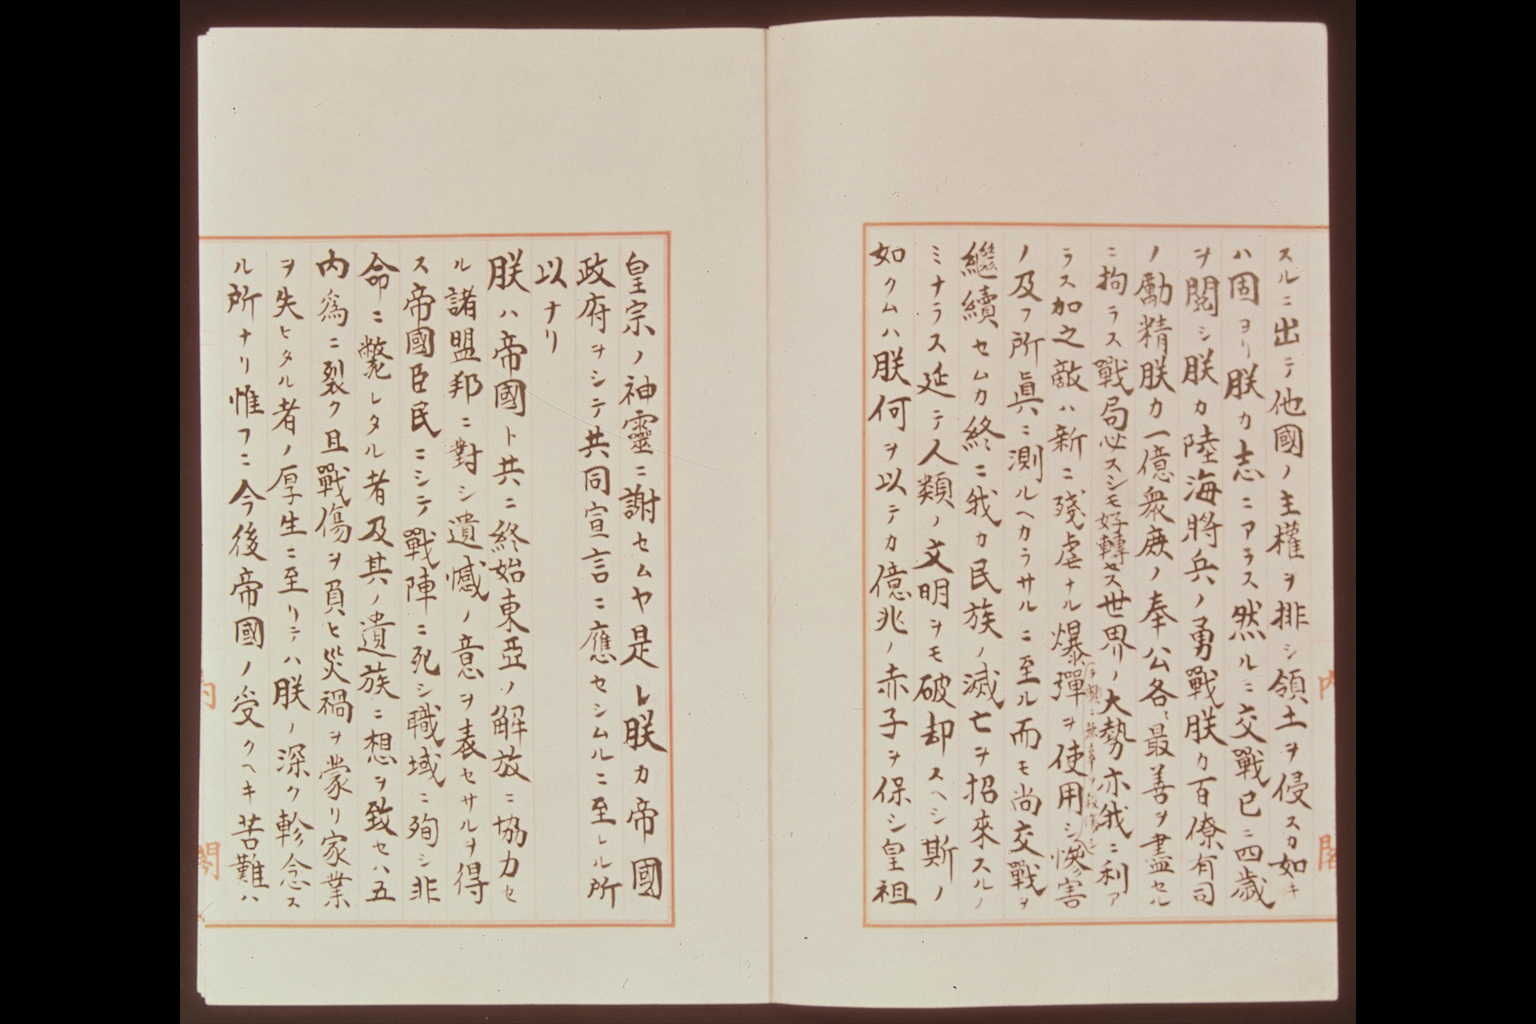 スルニ出テ他國ノ主權ヲ排シ領土ヲ侵スカ如キ
ハ固ヨリ朕カ志ニアラス然ルニ交戰已ニ四歲
ヲ閱シ朕カ陸海將兵ノ勇戰朕カ百僚有司
ノ勵精朕カ一億衆庶ノ奉公各〻最善ヲ盡セル
ニ拘ラス戰局必スシモ好轉セス世界ノ大勢亦我ニ利ア
ラス加之敵ハ新ニ殘虐ナル爆彈ヲ使用シ慘害
頻ニ無辜ヲ殺傷シ
ノ及フ所眞ニ測ルヘカラサルニ至ル而モ尚交戰ヲ
繼續セムカ終ニ我カ民族ノ滅亡ヲ招來スルノ
ミナラス延テ人類ノ文明ヲモ破却スヘシ斯ノ
如クムハ朕何ヲ以テカ億兆ノ赤子ヲ保シ皇祖
内閣
皇宗ノ神靈ニ謝セムヤ是レ朕カ帝國
政府ヲシテ共同宣言ニ應セシムルニ至レル所
以ナリ
朕ハ帝國ト共ニ終始東亞ノ解放ニ協力セ
ル諸盟邦ニ對シ遺憾ノ意ヲ表セサルヲ得
ス帝國臣民ニシテ戰陣ニ死シ職域ニ殉シ非
命ニ斃レタル者及其ノ遺族ニ想ヲ致セハ五
内爲ニ裂ク且戰傷ヲ負ヒ災禍ヲ蒙リ家業
ヲ失ヒタル者ノ厚生ニ至リテハ朕ノ深ク軫念ス
ル所ナリ惟フニ今後帝國ノ受クヘキ苦難ハ
内閣